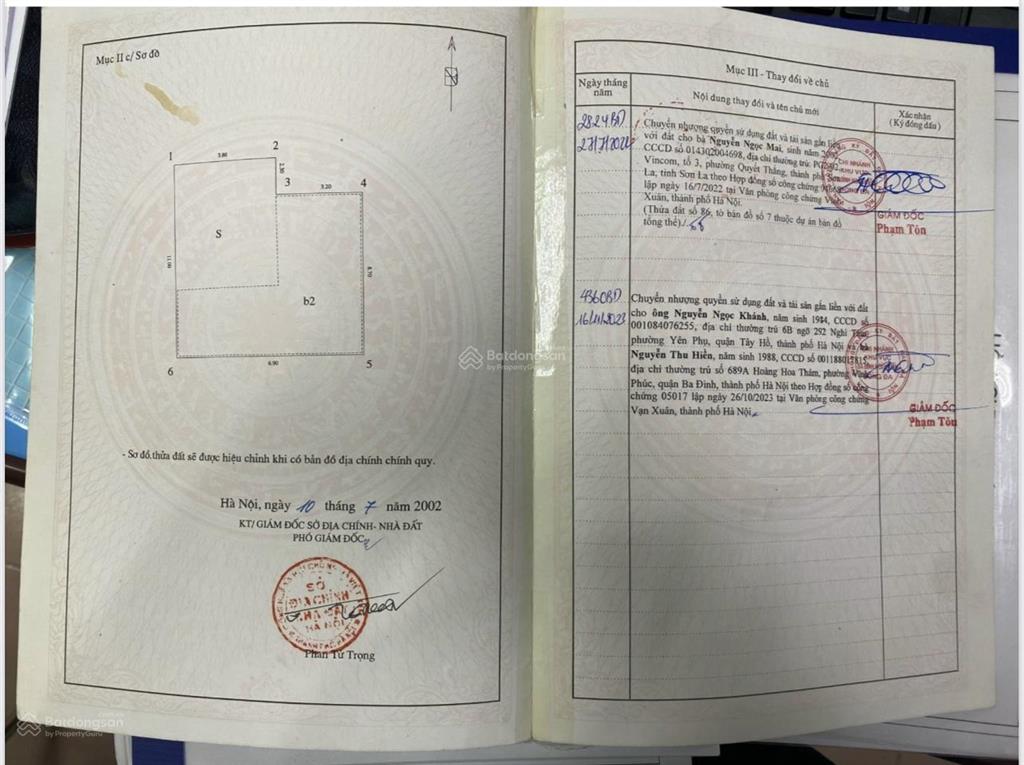 Mục II c/ Sơ đồ
1
3.80
2
2.30
3
3.20
4
S
11.00
8.70
b2
6
6.90
5
- Sơ đồ thửa đất sẽ được hiệu chỉnh khi có bản đồ địa chính chính quy.
Hà Nội, ngày 10 tháng 7 năm 2002
KT/ GIÁM ĐỐC SỞ ĐỊA CHÍNH- NHÀ ĐẤT
PHÓ GIÁM ĐỐC
SỞ
ĐỊA CHÍNH
NHÀ ĐẤT
HÀ NỘI
Phan Tử Trọng
Mục III - Thay đổi về chủ
Ngày tháng năm
Nội dung thay đổi và tên chủ mới
Xác nhận
(Ký đóng dấu)
2824BĐ
27/7/2022
Chuyển nhượng quyền sử dụng đất và tài sản gắn liền
với đất cho bà Nguyễn Ngọc Mai, sinh năm
CCCD số 014302004698, địa chỉ thường trú:
Vincom, tổ 3, phường Quyết Thắng, thành phố Sơn
La, tỉnh Sơn La theo Hợp đồng số công chứng
lập ngày 16/7/2022 tại Văn phòng công chứng
Xuân, thành phố Hà Nội.
(Thửa đất số 86, tờ bản đồ số 7 thuộc dự án bản đồ
tổng thể)./.
CHI NHÁNH
KHU VỰC
GIÁM ĐỐC
Phạm Tôn
4360BĐ
16/11/2023
Chuyển nhượng quyền sử dụng đất và tài sản gắn liền với đất
cho ông Nguyễn Ngọc Khánh, năm sinh 1984, CCCD số
001084076255, địa chỉ thường trú 6B ngõ 292 Nghi Tàm,
phường Yên Phụ, quận Tây Hồ, thành phố Hà Nội và bà
Nguyễn Thu Hiền, năm sinh 1988, CCCD số 001188017815,
địa chỉ thường trú số 689A Hoàng Hoa Thám, phường Vĩnh
Phúc, quận Ba Đình, thành phố Hà Nội theo Hợp đồng số công
chứng 05017 lập ngày 26/10/2023 tại Văn phòng công chứng
Vạn Xuân, thành phố Hà Nội.
CHI NHÁNH
KHU VỰC
GIÁM ĐỐC
Phạm Tôn
Batdongsan
by PropertyGuru
Batdongsan
by PropertyGuru